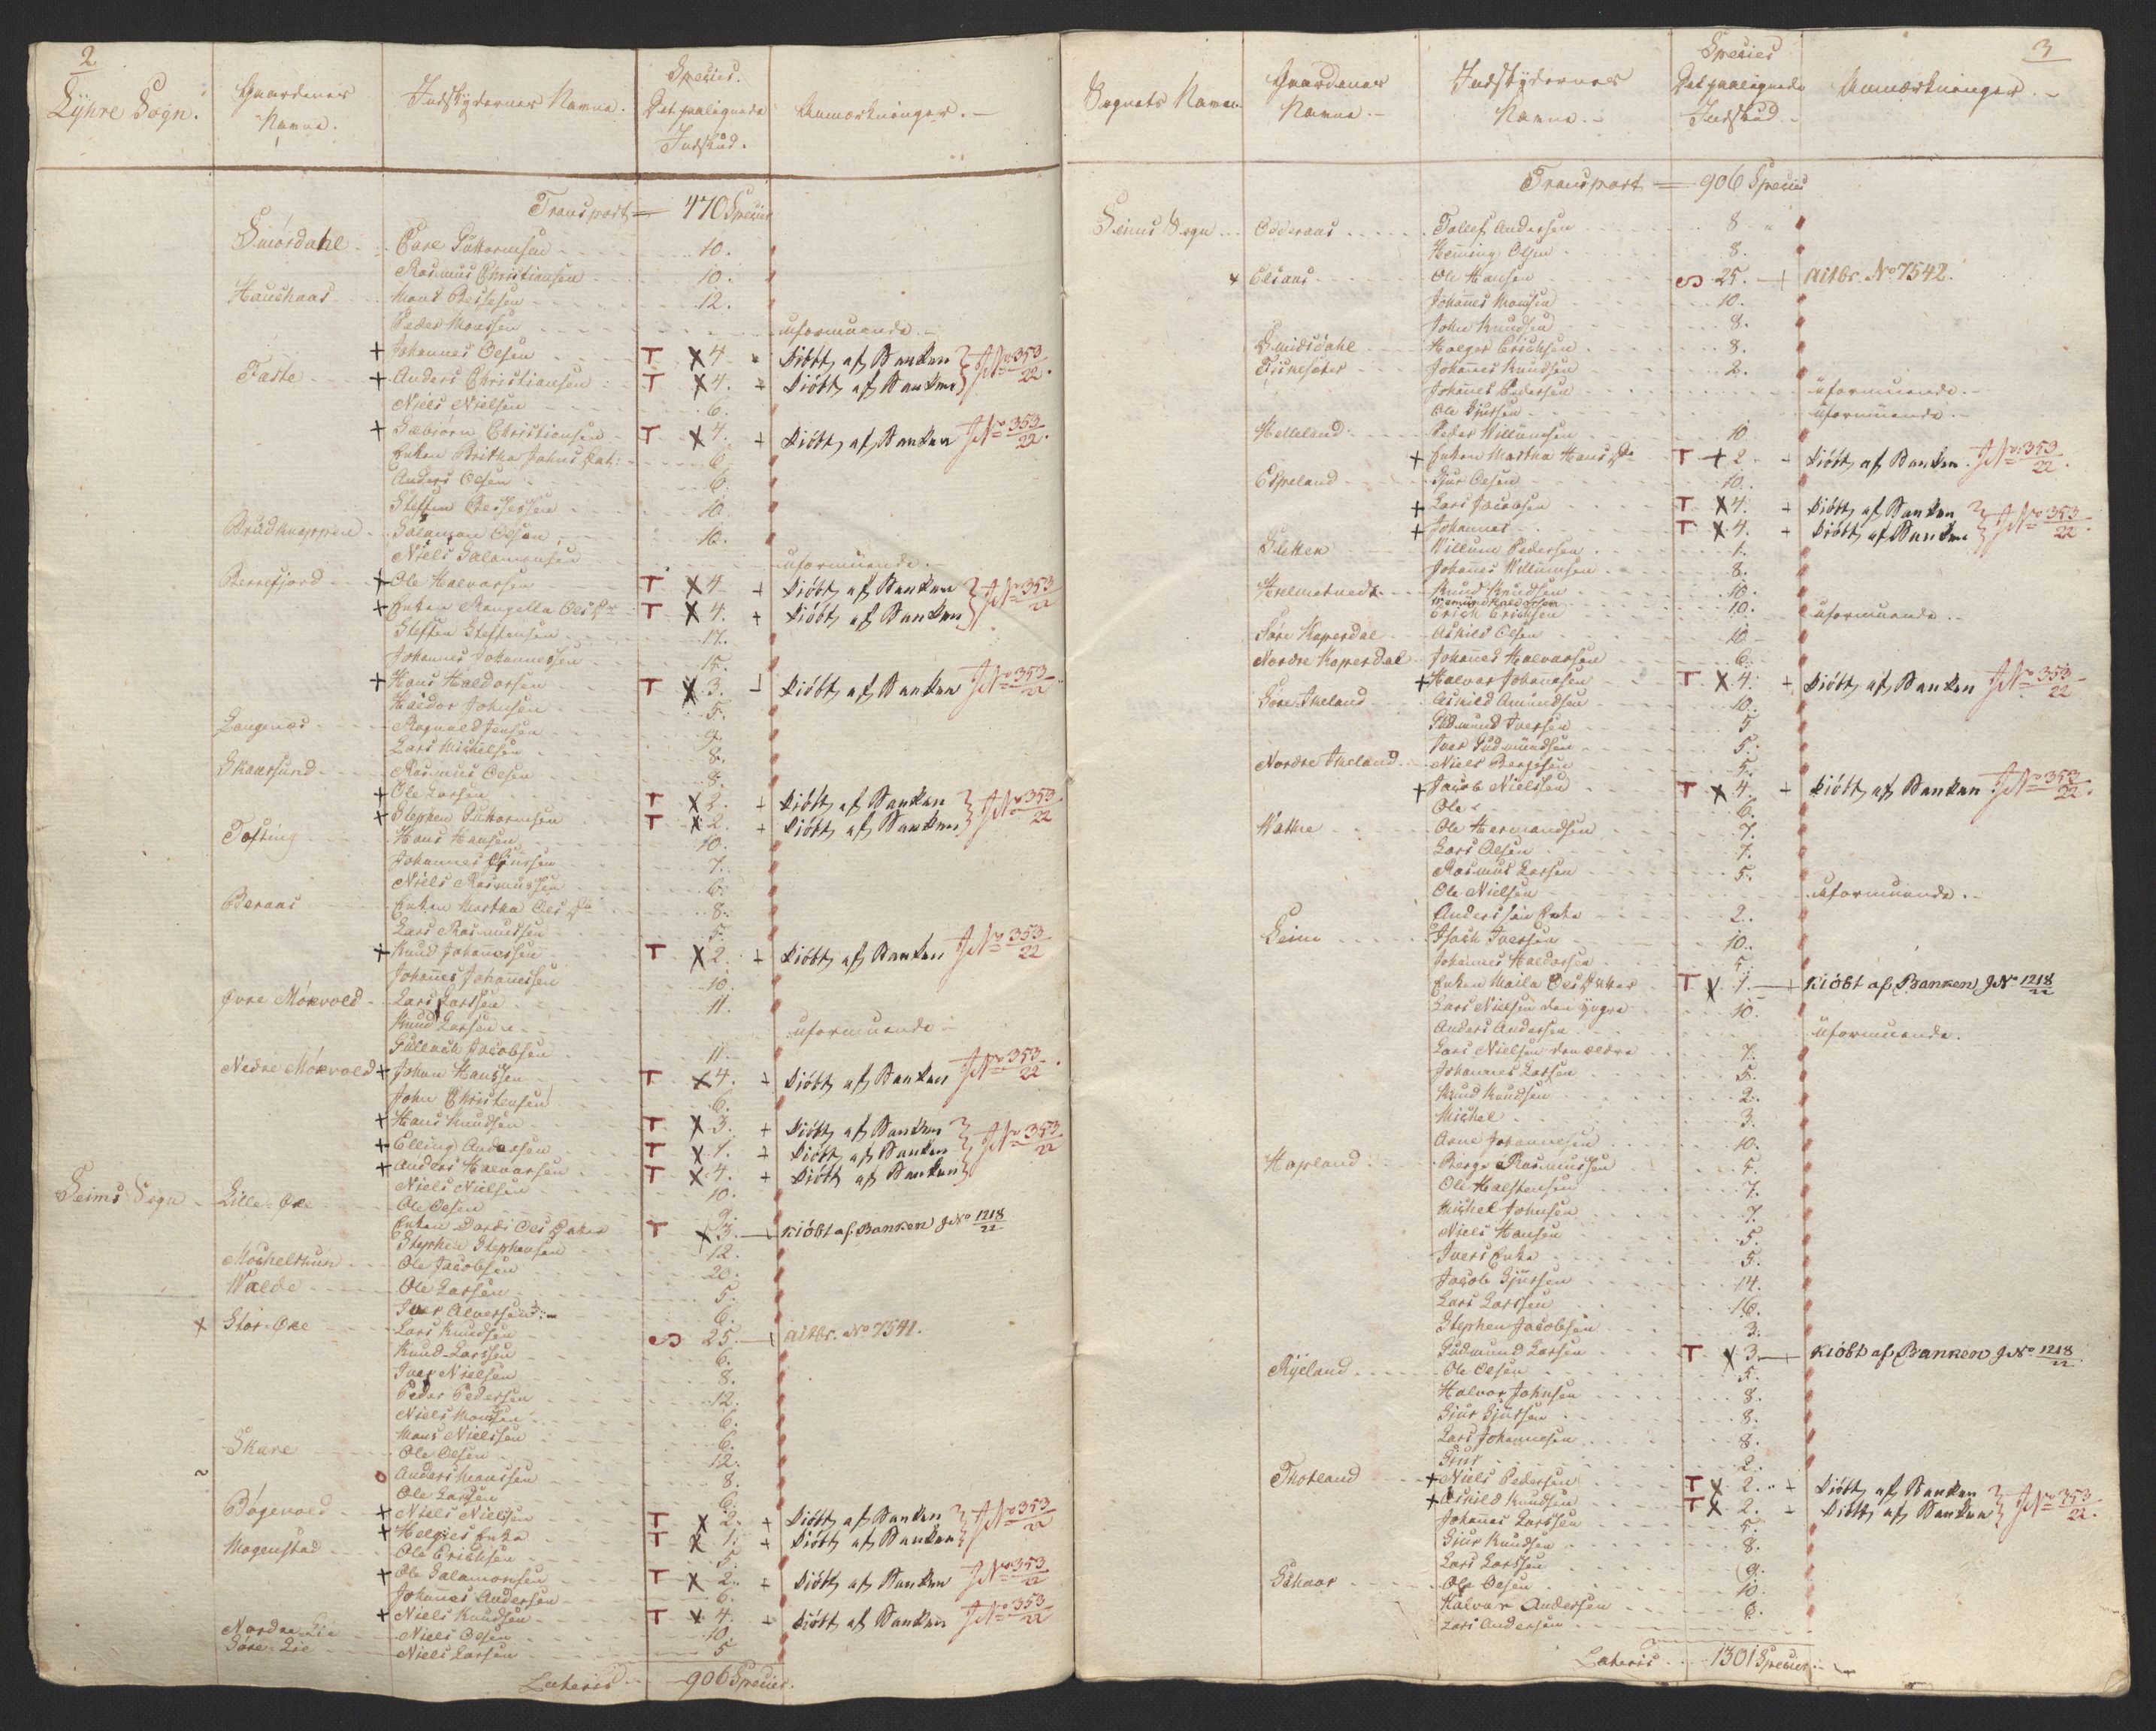 2
Lyhre Sogn. Gaardenes Navne. Indskydernes Navne. Species. Det paalignede Indskud. Anmærkninger.
Transport = 470 Species
Smördahl Pere Guttormsen 10.
Rasmus Christiansen 10.
Haushaas Mons 12.
Peder Monssen uformuende.
+ Johannes Olsen T X 4 kiöbt af Banken
Faste + Anders Christiansen T X 4. + kiöbt af Banken } J No 353/22.
Niels Nielsen 6.
+ Christiansen T X 4. + kiöbt af Banken J No 353/22.
Enken Britha Johns Dat: 6.
Anders Olsen 6.
Steffen 10.
Brudknappen Salamon Olsen 10.
Niels Salamonsen uformuende.
Berrefjord + Ole Halvorsen T X 4 + kiöbt af Banken
+ Enken Rangella Ols Dr T X 4. + kiöbt af Banken } J No 353/22
Steffen Steffensen 17.
Johannes Johannessen 15.
+ Hans Haldorsen T X 3. + kiöbt af Banken J No 353/22
Haldor Johnsen 5.
Langenæs Ragnvald Jensen 9.
Lars Michelsen 8.
Skaarsund Rasmus Olsen 8.
+ Ole Larsen T X 2. + kiöbt af Banken
+ Stephen Guttormsen T X 2. + kiöbt af Banken } J No 353/22
Tofting Hans Hansen 10.
Johannes 7.
Niels Rasmussen 6.
Beraas Enken Martha Ols Dr 8.
Lars Rasmussen 5.
+ Knud Johannessen T X 2. + kiöbt af Banken J No 353/22
Johannes Johannessen 10.
Øvre Mörvold Lars Larssen 11.
Knud Larsen uformuende
Gullach Jacobsen 11.
Nedre Mörvold + Johan Hanssen T X 4. + kiöbt af Banken J No 353/22
John Christensen 6.
+ Hans Knudsen T X 3. + kiöbt af Banken
+ Elling Andersen T X 1. + kiöbt af Banken } J No 353/22
+ Anders Halvorsen T X 4. + kiöbt af Banken
Niels Nielsen 10.
Seims Sogn Lille-Oxe Ole Olsen 9.
Enken Dordi Ols Datter T X 3. + kiöbt af Banken J No 1218/22
Stephen Stephensen 12.
Moshelthun Ole Jacobsen 20.
Walde Ole Larsen 5.
Iver 6.
X Stor-Oxe Lars Knudsen 25. + aitbr. No 7541.
Knud Larssen 6.
Iver Nielsen 8.
Peder Pedersen 12.
Niels Monsen 6.
Mons Nielssen 6.
Skare Ole Olsen 12.
o Anders Monssen 8.
Ole Larsen 6.
Bögevold + Niels Nielsen T X 2. + kiöbt af Banken
+ Helgies Enke T X 1. + kiöbt af Banken } J No 353/22
Mogenstad Ole Erichsen 5.
+ Ole Salamonsen T X 2. + kiöbt af Banken J No 353/22
Johannes Andersen 6.
+ Niels Knudsen T X 4. + kiöbt af Banken J No 353/22
Nordre-Lie Niels Olsen 10.
Söre-Lie Niels Larsen 5
Lateris 906 Species.
3
Sognets Navn. Gaardenes Navne. Indskydernes Navne. Species Det paalignede Indskud Anmærkninger.
Transport = 906 Species
Seims Sogn Oderaas Tollef Andersen 8
Heming Olsen 8.
+ Elsaas Ole Hansen 25. + aitbr. No 7542.
Johannes Monsen 10.
John Knudsen 8.
Smidsdahl Holger Erichsen 8.
Fiskesæter Johannes Knudsen 2.
Johannes Pedersen uformuende.
Ole Sjursen uformuende.
Helleland Peder Willumsen 10
+ Enken Martha Hans Dr T + 2 + kiöbt af Banken. J No 353/22.
Espeland Sjur Olsen 10.
+ Lars Jacobsen T X 4. + kiöbt af Banken
+ Johannes T X 4. + kiöbt af Banken } J No 353/22.
Sletten Willum Pedersen 1.
Johannes Willumsen 8.
Holmetvedt Knud Knudsen 10.
Erich Erichsen 10. uformuende.
Söre Haperdal Askild Olsen 10
Nordre Haperdal Johannes Halvorsen 6.
+ Halvor Johansen T X 4. + kiöbt af Banken J No 353/22
Söre-Aseland Askild Amundsen 10.
Gudmund Iversen 5
Iver Gudmundsen 5.
Nordre Aseland Niels 5.
+ Jacob Nielssen T X 4. + kiöbt af Banken J No 353/22.
Ole 6.
Wathne Ole Hermandsen 7.
Lars Olsen 7.
Rasmus Larsen 5.
Ole Nielsen uformuende.
Anderssön Enke 2.
Seim Isach Iversen 10.
Johannes Haldorsen 5.
Enken Maila Ols Datter T X 1. + kiöbt af Banken J No 1218/22
Lars Nielsen den yngre 10.
Anders Andersen uformuende.
Lars Nielsen den ældre 7.
Johannes Larsen 5.
Knud Knudsen 2.
Michel 3.
Arne Johannesen 10.
Hopland Berge Rasmussen 5.
Ole Halstensen 7.
Michel Johnsen 7.
Niels Hansen 5.
Ivers Enke 5.
Jacob Sjursen 14.
Lars Larssen 16.
Stephen Jacobsen 3.
Gudmund Larsen T X 3. + kiöbt af Banken J No 1218/22
Ryeland Ole Olsen 5.
Halvor Johnsen 8.
Sjur Sjursen 8.
Lars Johannesen 8.
Sjur 2.
Thotland + Niels Pedersen T X 2. + kiöbt af Banken
+ Askild Knudsen T X 2. + kiöbt af Banken } J No 353/22.
Johannes Larssen 5.
Sjur Knudsen 8.
Lars Larssen 9.
Ole Olsen 10.
Halvor Andersen 6.
Lars Andersen
Lateris 1301 Species.